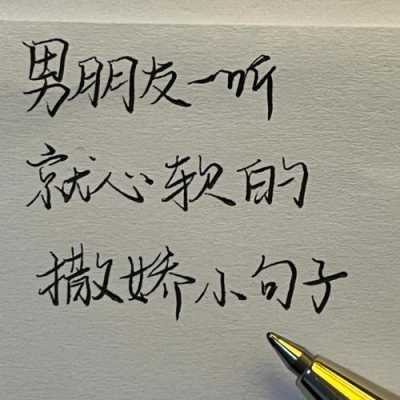 男朋友一听
就心软的
撒娇小句子